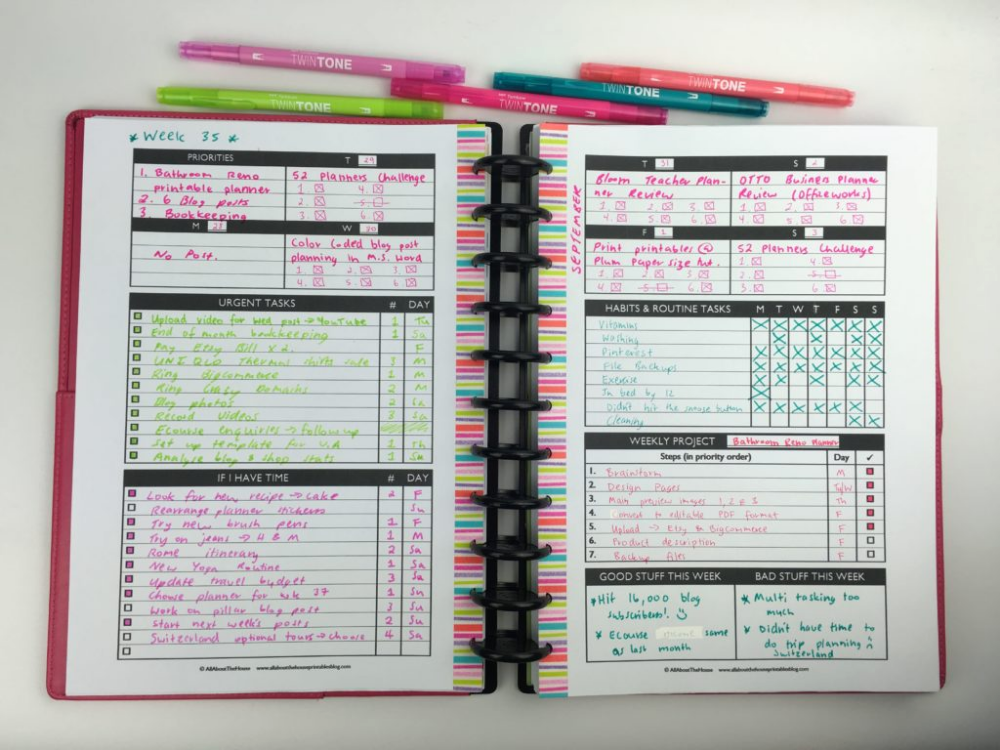 TWINTONE
TWINTONE
TWINTONE
TWINTONE
TWINTONE
* Week 35 *
PRIORITIES
1. Bathroom Reno
printable planner
2. 6 Blog posts
3. Bookkeeping
T 29
52 Planners Challenge
1. 4.
2. 5.
3. 6.
M 28
No Post.
W 30
Color Coded blog post
planning in M.S. Word
1. 2. 3.
4. 5. 6.
URGENT TASKS # DAY
Upload video for wed post → YouTube 1 Tu
End of month bookkeeping 1 Su
Pay Etsy Bill x 2. F
UNIQLO Thermal shirts sale 3 M
Ring bigcommerce 1 M
Ring 2 M
Blog photos 2 Sa
Record Videos 3 Sa
Ecourse enquiries → follow up
Set up template for V.A 1 Th
Analyse blog & shop stats 1 Su
IF I HAVE TIME # DAY
Look for new recipe → cake 2 F
Rearrange planner stickers Su
Try new brush pens 1 F
Try on jeans → H & M 1 M
Rome itinerary 2 Sa
New Yoga Routine 1 Sa
Update travel budget 3 Sa
Choose planner for wk 37 1 Su
Work on pillar blog post 3 Su
Start next week's posts 2 Su
Switzerland optional tours → choose 4 Sa
© AllAboutTheHouse www.allaboutthehouseprintablesblog.com
SEPTEMBER
T 31
Bloom Teacher Plan-
ner Review
1. 2. 3.
4. 5. 6.
S 2
OTTO Business Planner
Review (Officeworks)
1. 2. 3.
4. 5. 6.
F 1
Print printables @
Plum Paper size tut.
1. 2. 3.
4. 5. 6.
S 3
52 Planners Challenge
1. 4.
2. 5.
3. 6.
HABITS & ROUTINE TASKS M T W T F S S
Vitamins
Washing
Pinterest
File Backups
Exercise
In bed by 12
Didn't hit the snooze button
Cleaning
WEEKLY PROJECT Bathroom Reno Planner
Steps (in priority order) Day ✓
1. Brainstorm M
2. Design Pages Tu/W
3. Main preview images 1, 2 & 3 Th
4. Convert to editable PDF format F
5. Upload → Etsy & Bigcommerce F
6. Product description F
7. Backup files F
GOOD STUFF THIS WEEK
* Hit 16,000 blog
subscribers! ☺
* Ecourse income same
as last month
BAD STUFF THIS WEEK
* Multi tasking too
much
* Didn't have time to
do trip planning
Switzerland
© AllAboutTheHouse www.allaboutthehouseprintablesblog.com